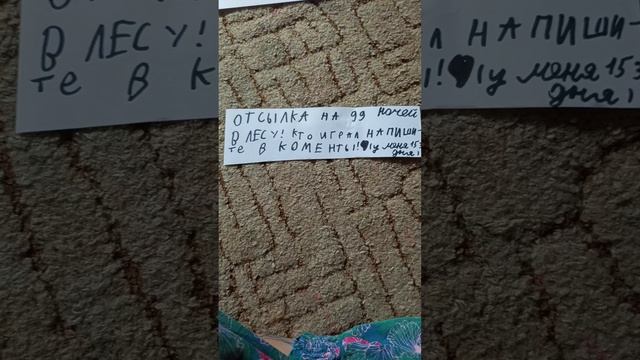 ОТСЫЛКА НА 99 НОЧЕЙ
В ЛЕСУ! КТО ИГРАЛ НАПИШИ-
ТЕ В КОМЕНТЫ! !у меня 153
дня!